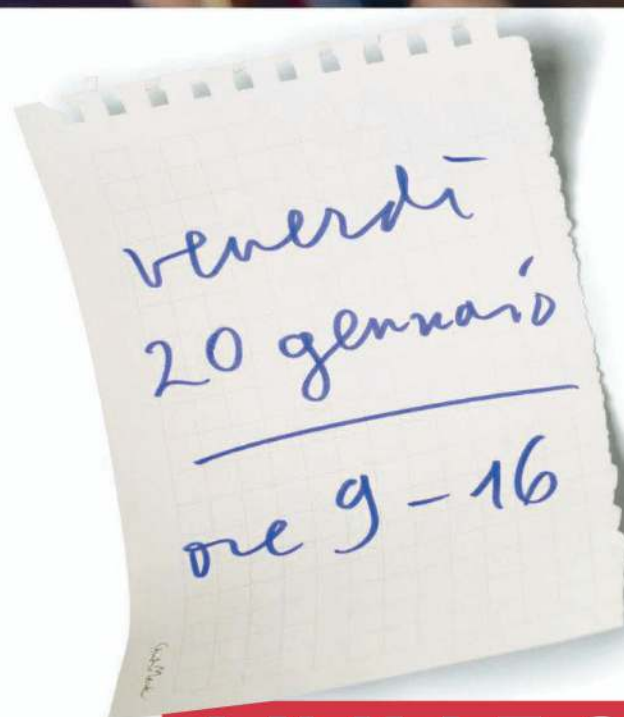 venerdì
20 gennaio
ore 9 - 16